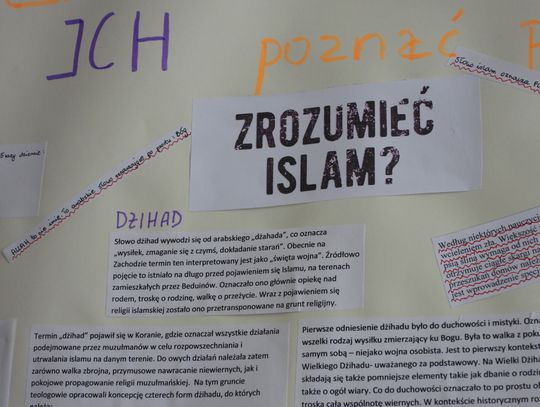 JCH
poznać
P
Słowo islam oznacza
ZROZUMIEĆ
ISLAM?
Allah to nie imię. To arabskie słowo oznaczające po prostu: Bóg
DŻIHAD
Słowo dżihad wywodzi się od arabskiego „dżahada”, co oznacza
„wysiłek, zmaganie się z czymś, dokładanie starań”. Obecnie na
Zachodzie termin ten interpretowany jest jako „święta wojna”. Źródłowo
pojęcie to istniało na długo przed pojawieniem się Islamu, na terenach
zamieszkałych przez Beduinów. Oznaczało ono głównie opiekę nad
rodem, troskę o rodzinę, walkę o przeżycie. Wraz z pojawieniem się
religii islamskiej zostało ono przetransponowane na grunt religijny.
Według niektórych nauczycieli
wcieleniem zła. Większość
psią śliną wymaga od nich
otrzymuje ciągłe skargi
przeszukań domów
jest wprowadzenie
Termin „dżihad” pojawił się w Koranie, gdzie oznaczał wszystkie działania
podejmowane przez muzułmanów w celu rozpowszechniania i
utrwalania islamu na danym terenie. Do owych działań należała zatem
zarówno walka zbrojna, przymusowe nawracanie niewiernych, jak i
pokojowe propagowanie religii muzułmańskiej. Na tym gruncie
teologowie opracowali koncepcję czterech form dżihadu, do których
należą:
Pierwsze odniesienie dżihadu było do duchowości i mistyki.
wszelki rodzaj wysiłku zmierzający ku Bogu. Była to walka z
samym sobą – niejako wojna osobista. Jest to pierwszy
Wielkiego Dżihadu- uważanego za podstawowy. Na Wielki
składają się także pomniejsze elementy takie jak dbanie o
także o ogół wiary. Co do duchowości oznaczało to po prostu
troska całą wspólnotę wiernych. W kontekście historycznym